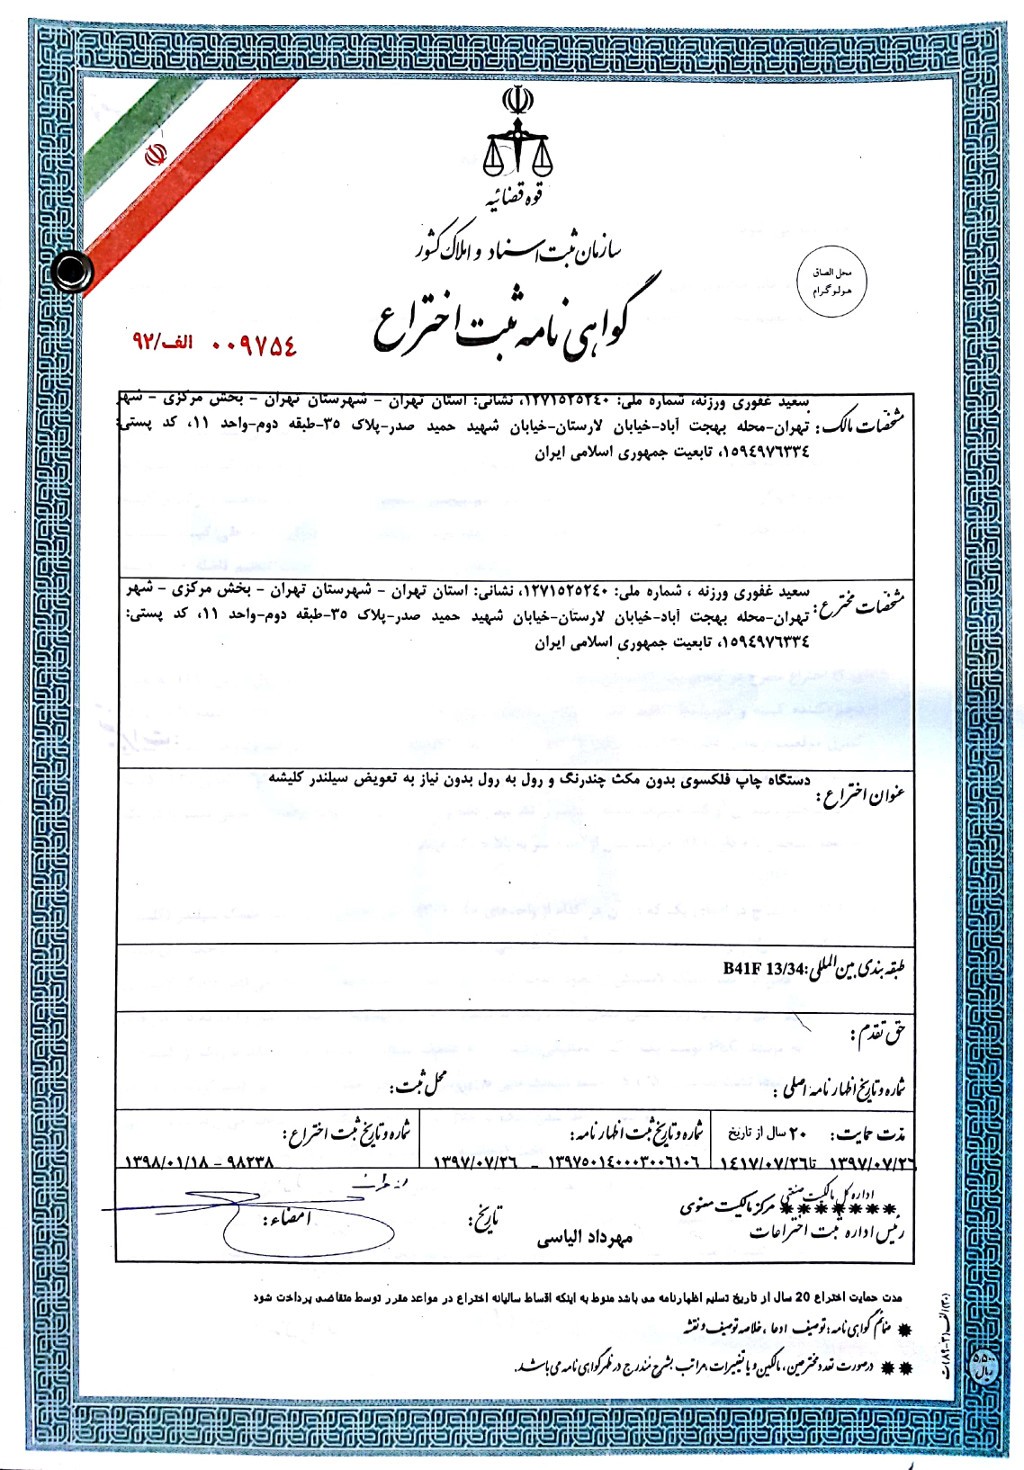 قوه قضائیه
سازمان ثبت اسناد و املاک کشور
محل الصاق
هولوگرام
گواهی نامه ثبت اختراع
الف/۹۲ ۰۰۹۷۵۴
مشخصات مالک: سعید غفوری ورزنه، شماره ملی: ۱۲۷۱۵۲۵۲۴۰، نشانی: استان تهران - شهرستان تهران - بخش مرکزی - شهر
تهران-محله بهجت آباد-خیابان لارستان-خیابان شهید حمید صدر-پلاک ۳۵-طبقه دوم-واحد ۱۱، کد پستی:
۱۵۹۴۹۷۶۳۳۴، تابعیت جمهوری اسلامی ایران
مشخصات مخترع: سعید غفوری ورزنه ، شماره ملی: ۱۲۷۱۵۲۵۲۴۰، نشانی: استان تهران - شهرستان تهران - بخش مرکزی - شهر
تهران-محله بهجت آباد-خیابان لارستان-خیابان شهید حمید صدر-پلاک ۳۵-طبقه دوم-واحد ۱۱، کد پستی:
۱۵۹۴۹۷۶۳۳۴، تابعیت جمهوری اسلامی ایران
عنوان اختراع: دستگاه چاپ فلکسوی بدون مکث چندرنگ و رول به رول بدون نیاز به تعویض سیلندر کلیشه
طبقه بندی بین المللی: B41F 13/34
حق تقدم:
شماره و تاریخ اظهار نامه اصلی: محل ثبت:
مدت حمایت: ۲۰ سال از تاریخ شماره و تاریخ ثبت اظهار نامه: شماره و تاریخ ثبت اختراع:
۱۳۹۷/۰۷/۲۶ تا ۱۴۱۷/۰۷/۲۶ ۱۳۹۷۵۰۱۴۰۰۰۳۰۰۶۱۰۶ - ۱۳۹۷/۰۷/۲۶ ۹۸۲۳۸ - ۱۳۹۸/۰۱/۱۸
اداره کل مالکیت صنعتی
******* مرکز مالکیت معنوی
رئیس اداره ثبت اختراعات مهرداد الیاسی تاریخ: امضاء:
مدت حمایت اختراع 20 سال از تاریخ تسلیم اظهارنامه می باشد منوط به اینکه اقساط سالیانه اختراع در مواعد مقرر توسط متقاضی پرداخت شود
* ضمائم گواهی نامه: توصیف ادعا ، خلاصه توصیف و نقشه
** در صورت تعدد مخترعین، مالکین و یا تغییرات، مراتب بشرح مندرج در ظهر گواهی نامه می باشد.
ریال